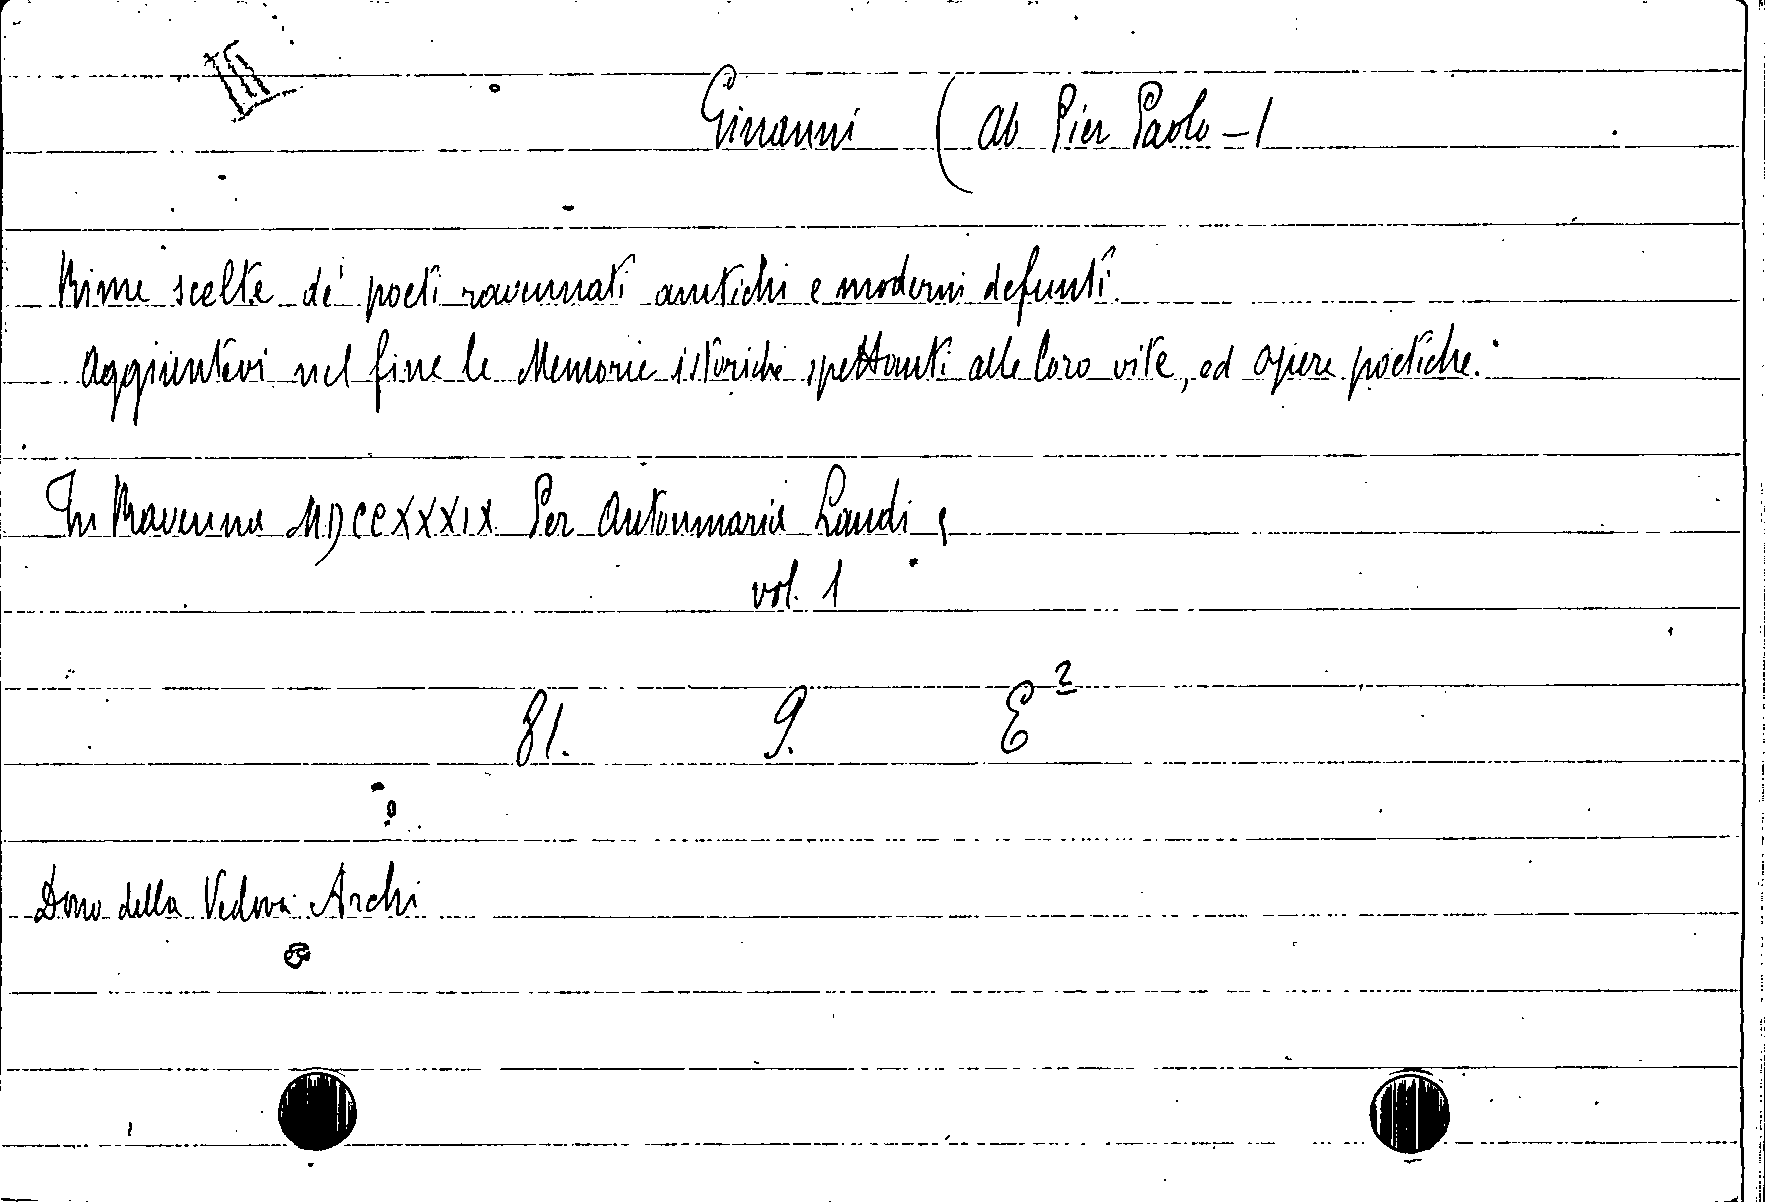 Ginanni (Ab Pier Paolo-1
Rime scelte de' poeti ravennati antichi e moderni defunti.
Aggiuntevi nel fine le Memorie istoriche spettanti alle loro vite, ed opere poetiche.
In Ravenna MDCCXXXIX Per Antonmaria Landi,
vol. 1
81. 9. E²
Dono della Vedova Archi